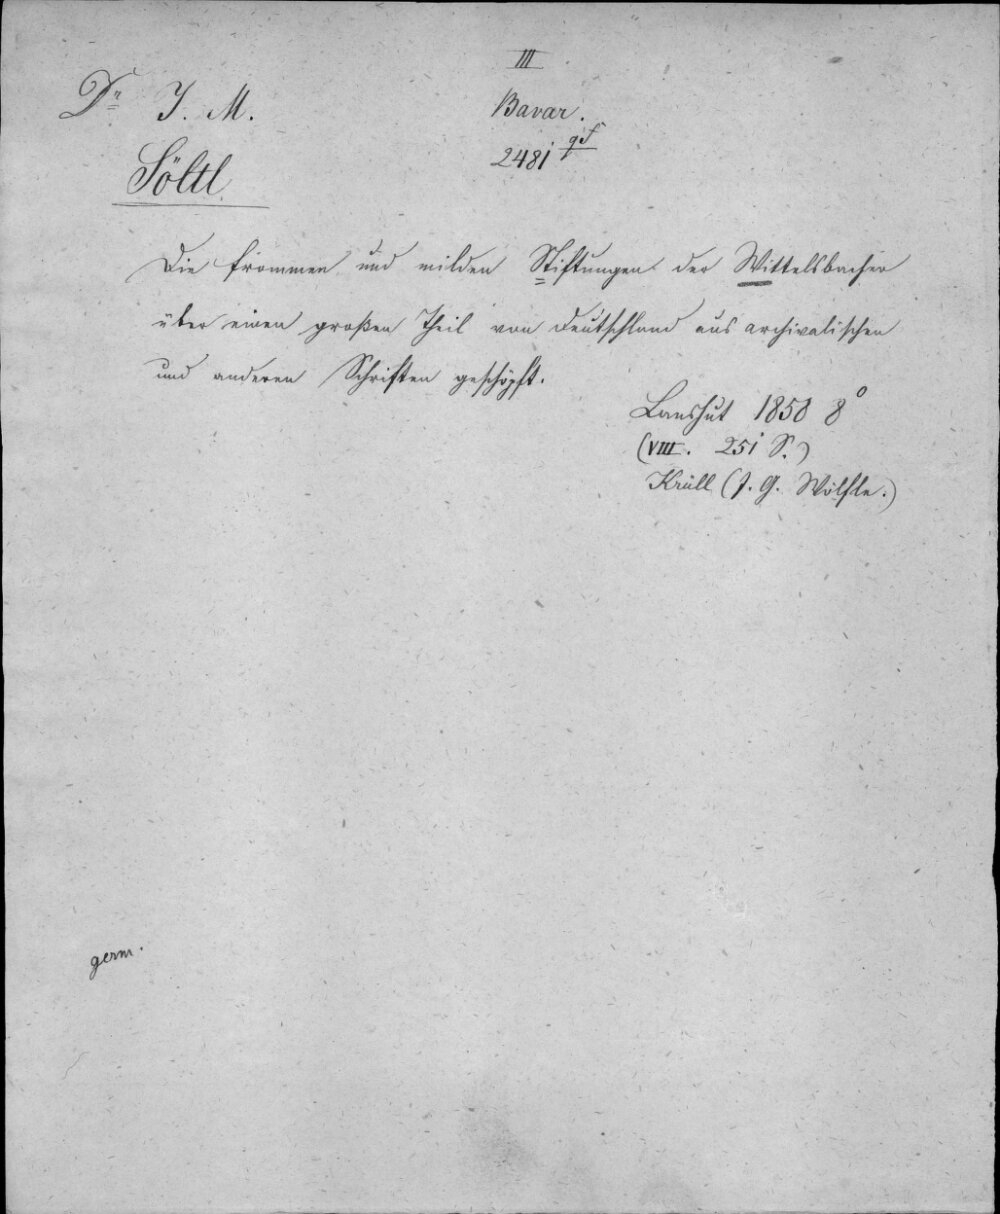 III
Dr J. M.
Bavar.
2481 qf
Söltl
Die frommen und milden Stiftungen der Wittelsbacher
über einen großen Theil von Deutschland aus archivalischen
und anderen Schriften geschöpft.
Landshut 1858 8°
(VIII. 251 S.)
Krüll (J. G. Wölfle.)
germ.